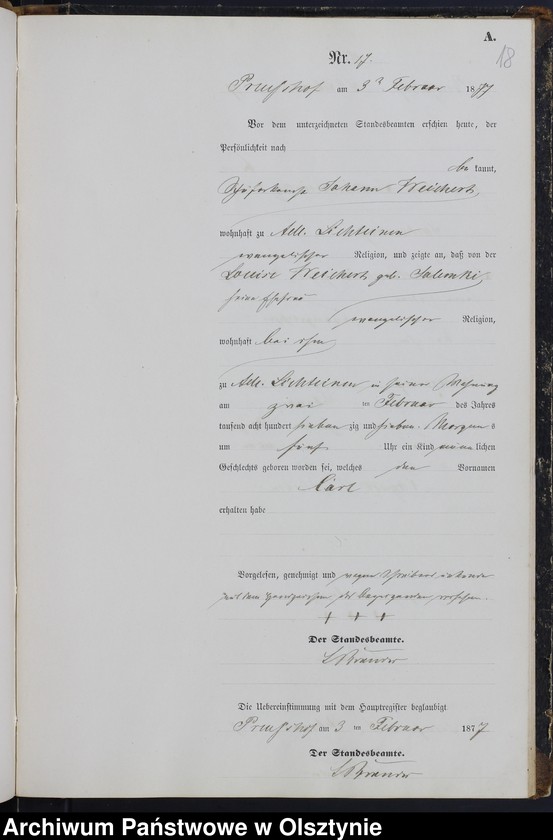 A.
18
Nr. 17.
Preußhof am 3 t Februar 1877
Vor dem unterzeichneten Standesbeamten erschien heute, der
Persönlichkeit nach
be kannt,
Johann Weichert,
wohnhaft zu Adl. Lichteinen
evangelischer Religion, und zeigte an, daß von der
Louise Weichert geb. Salewski,
seine Ehefrau
evangelischer Religion,
wohnhaft bei ihm
zu Adl. Lichteinen in seiner Wohnung
am zwei ten Februar des Jahres
tausend acht hundert sieben zig und sieben Morgens
um fünf Uhr ein Kind männlichen
Geschlechts geboren worden sei, welches den Vornamen
Carl
erhalten habe
Vorgelesen, genehmigt und wegen Schreibensunkunde
mit dem Handzeichen des versehen.
+ + +
Der Standesbeamte.
Die Uebereinstimmung mit dem Hauptregister beglaubigt
Preußhof am 3 ten Februar 1877
Der Standesbeamte.
Archiwum Państwowe w Olsztynie